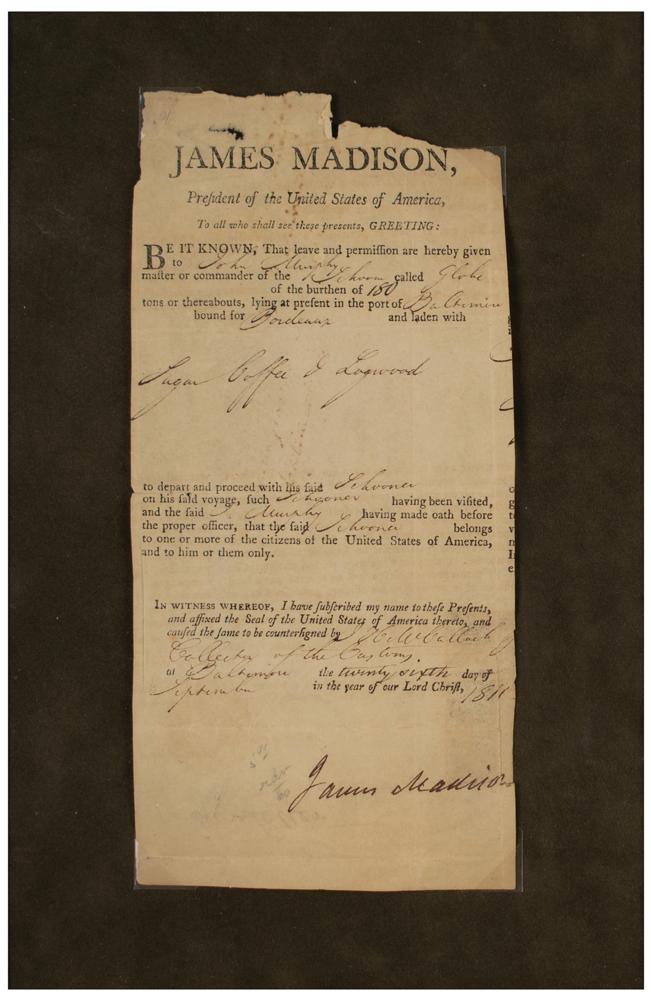 JAMES MADISON,
Preſident of the United States of America,
To all who shall see theſe presents, GREETING:
BE IT KNOWN, That leave and permiſſion are hereby given
to John Murphy
maſter or commander of the Schoon called Globe
of the burthen of 180
tons or thereabouts, lying at preſent in the port of Baltimore
bound for Bordeaux and laden with
Sugar Coffee & Logwood
to depart and proceed with his ſaid Schooner
on his ſaid voyage, ſuch Schooner having been viſited,
and the ſaid J. Murphy having made oath before
the proper officer, that the ſaid Schooner belongs
to one or more of the citizens of the United States of America,
and to him or them only.
IN WITNESS WHEREOF, I have ſubſcribed my name to theſe Preſents,
and affixed the Seal of the United States of America thereto, and
cauſed the ſame to be counterſigned by
Collector of the Customs.
at Baltimore the twenty sixth day of
September in the year of our Lord Chriſt, 1811
James Madison